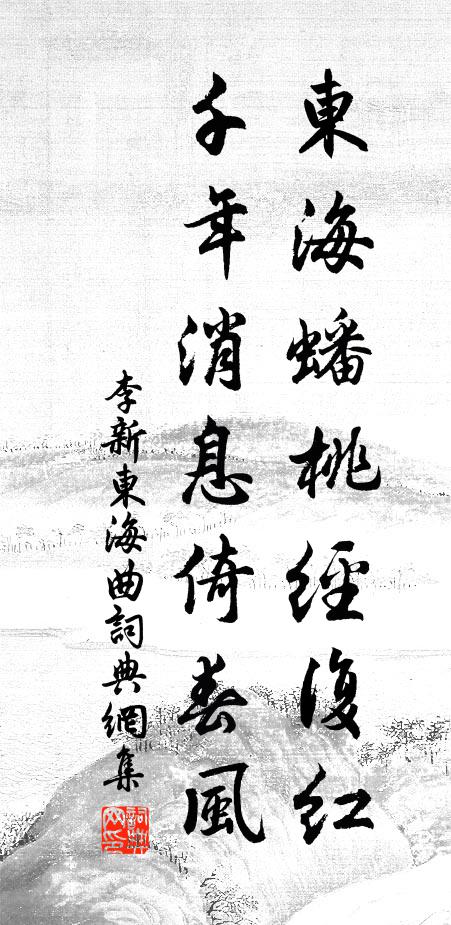 東海蟠桃經復紅
千年消息倚春風
李新東海曲詞典網集